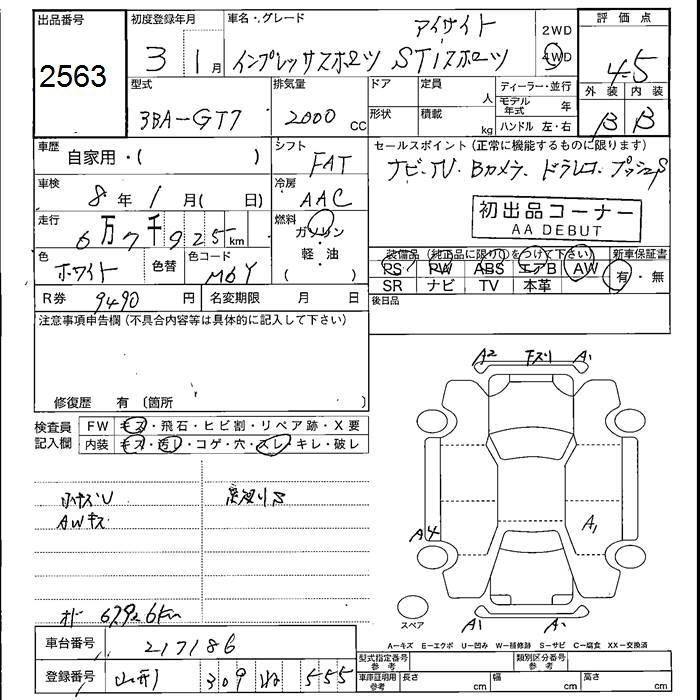 出品番号 初度登録年月 車名・グレード 評価点
2563
3年 1月 インプレッサスポーツ STIスポーツ アイサイト 2WD 4WD
4.5
外装 内装
B B
型式 排気量 ドア 定員 人 ディーラー・並行
3BA-GT7 2000 cc 形状 積載 kg モデル年式 年
ハンドル 左・右
車歴 自家用・( ) シフト FAT
セールスポイント (正常に機能するものに限ります)
ナビ・TV・Bカメラ・ドラレコ・プッシュS
車検 8年 1月( 日) 冷房 AAC
初出品コーナー
AA DEBUT
走行 6万7千925km 燃料 ガソリン・軽・油 ( )
色 ホワイト 色替 色コード M6Y
装備品 (純正品に限り〇をつけて下さい) 新車保証書
PS PW ABS エアB AW 有・無
SR ナビ TV 本革
R券 9490円 名変期限 月 日 後日品
注意事項申告欄 (不具合内容等は具体的に記入して下さい)
修復歴 有 (箇所 )
検査員記入欄 FW キズ・飛石・ヒビ割・リペア跡・X要
内装 キズ・汚レ・コゲ・穴・スレ・キレ・破レ
A2 下スリ A1
AWキズ
A4 A1
スペア
A1 A1
オド 67926km
A-キズ E-エクボ U-凹み W-補修跡 S-サビ C-腐食 XX-交換済
車台番号 217186
型式指定番号 参考 類別区分番号 参考
登録番号 山形 309 ね 555
車庫証明用 参考 長さ cm 幅 cm 高さ cm